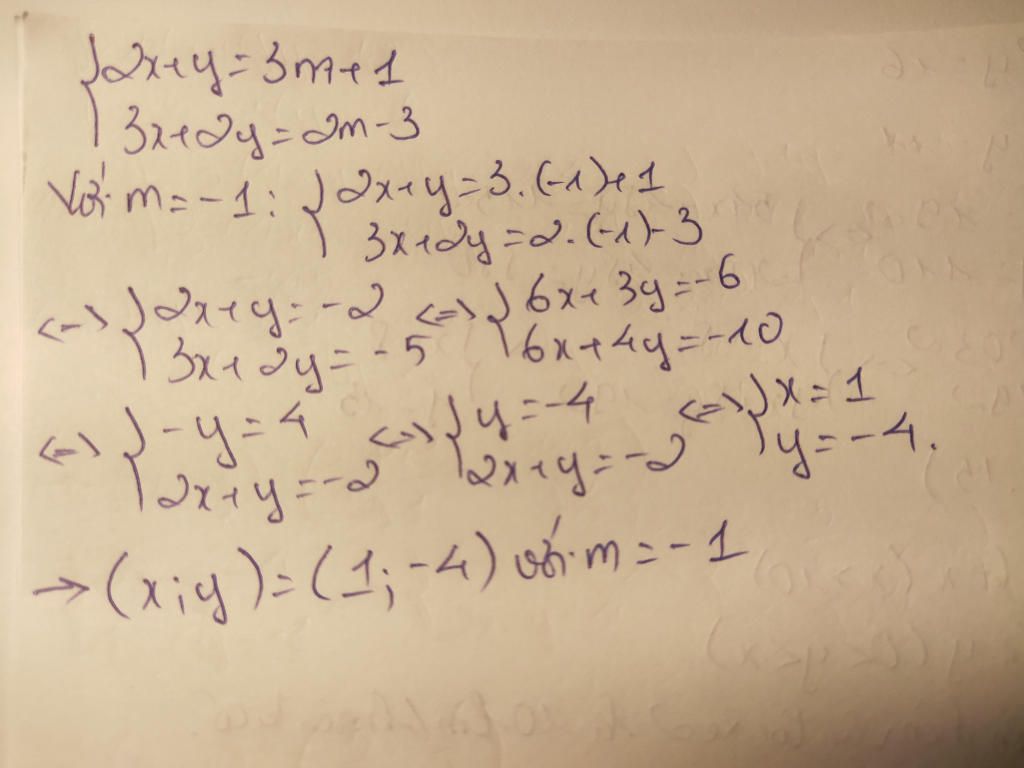 {2x+y=3m+1
3x+2y=2m-3
Với m=-1: {2x+y=3.(-1)+1
3x+2y=2.(-1)-3
<=> {2x+y=-2 <=> {6x+3y=-6
3x+2y=-5 6x+4y=-10
<=> {-y=4 <=> {y=-4 <=> {x=1
2x+y=-2 2x+y=-2 y=-4.
→ (x;y)=(1;-4) với m=-1